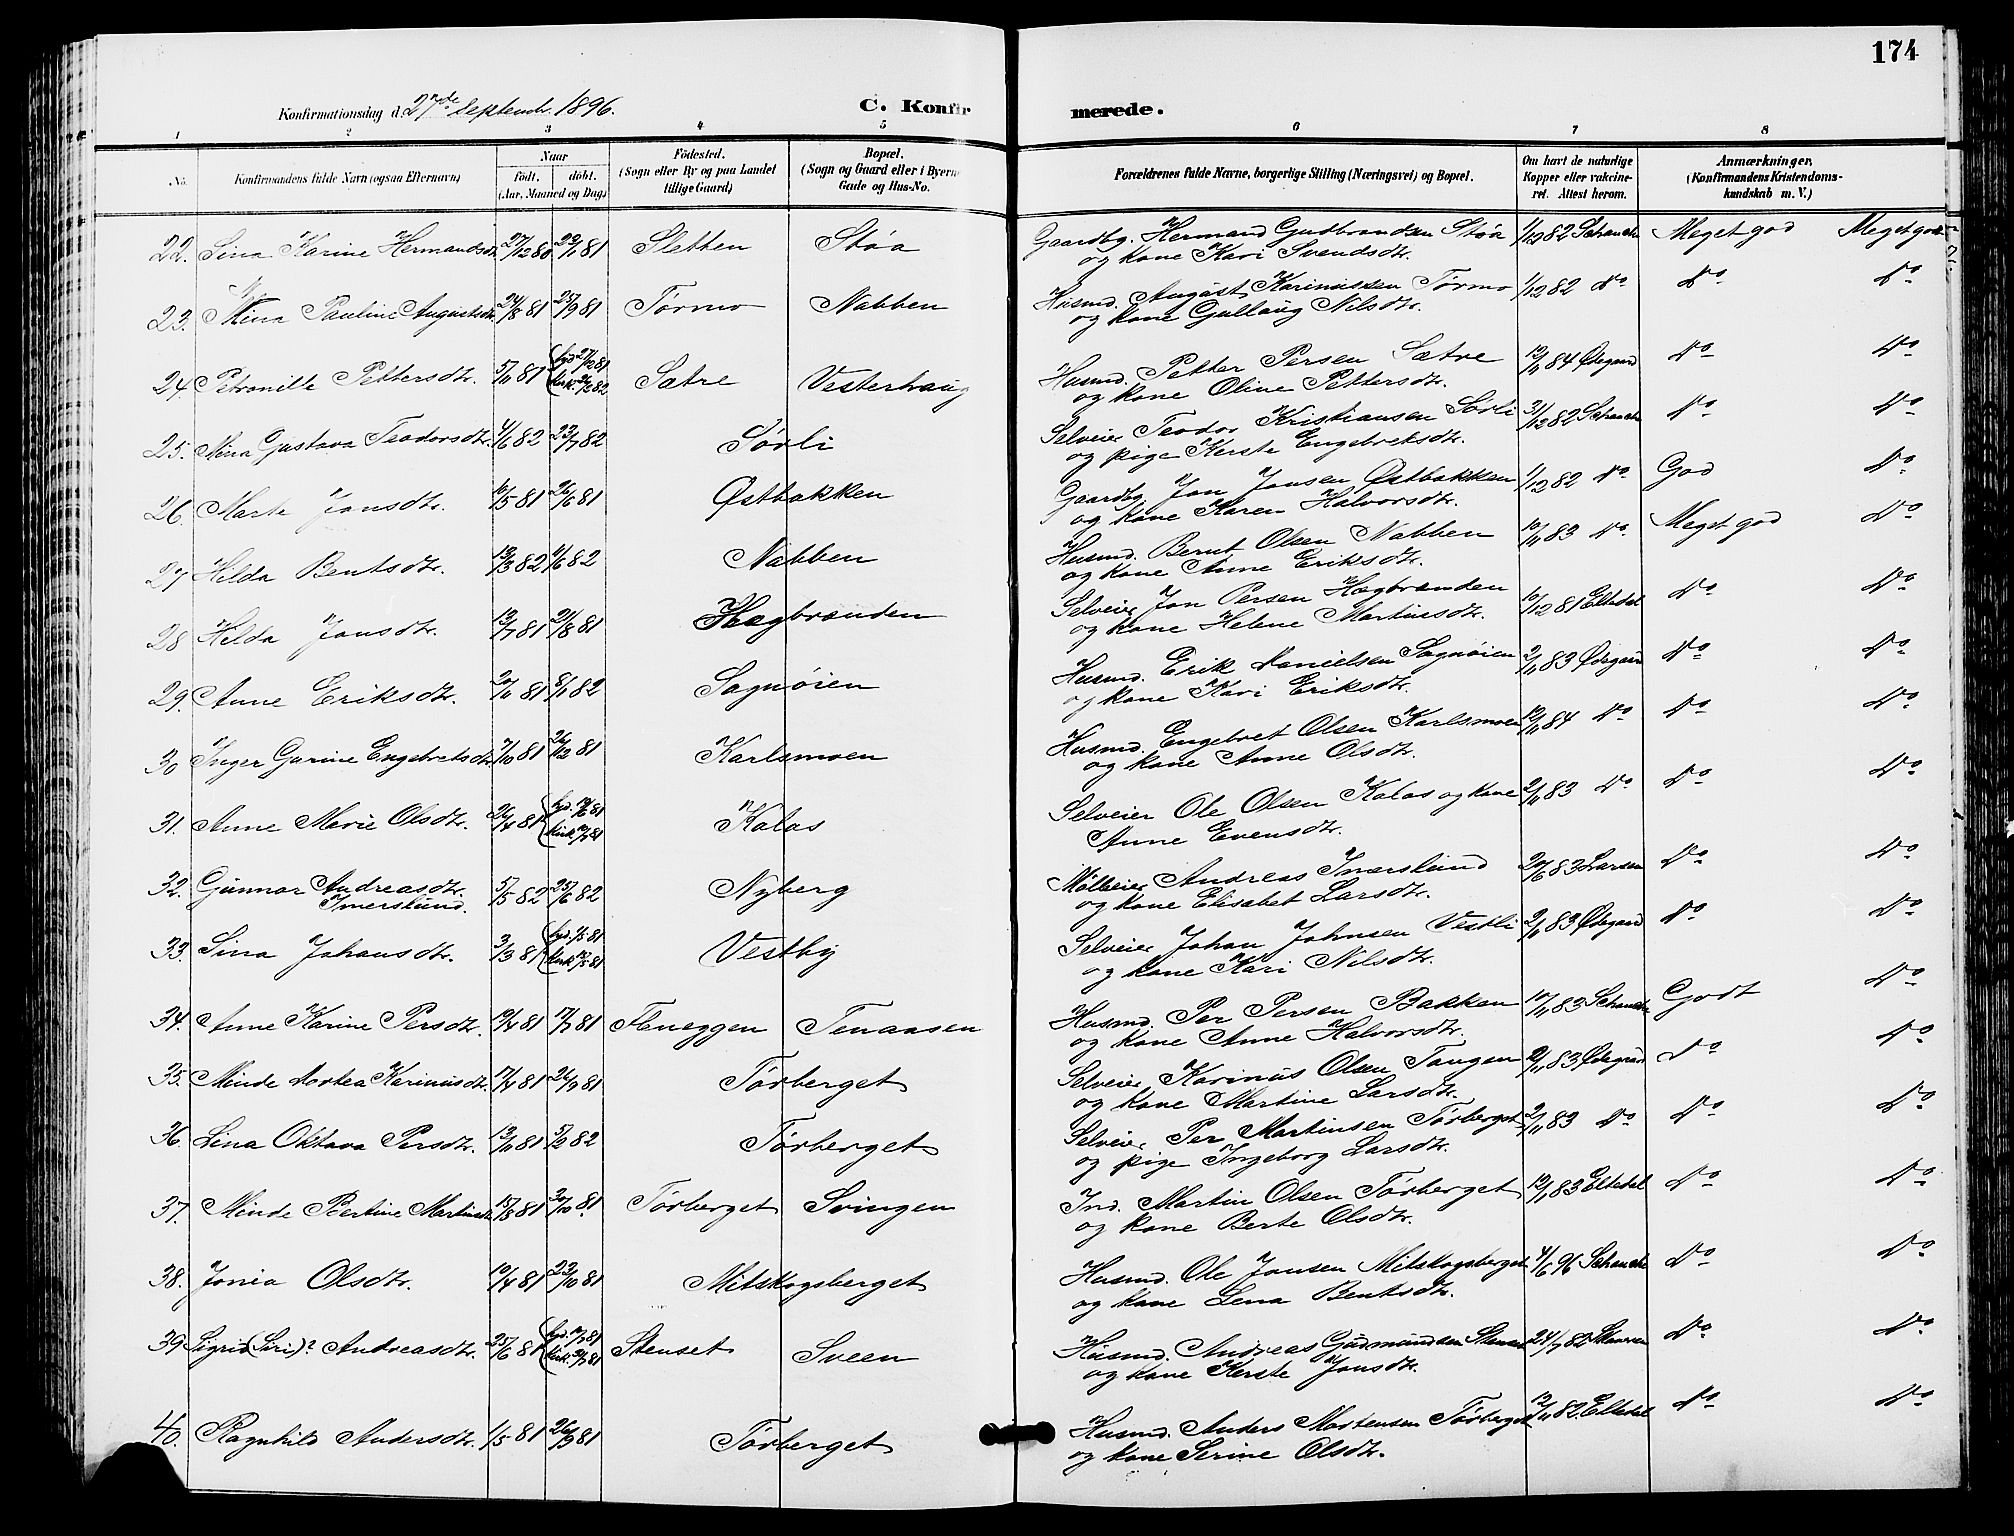 174
Konfirmationsdag d. 27de Septembr. 1896.
C. Konfir
merede.
1 2 3 4 5 6 7 8
No.
Konfirmandens fulde Navn (ogsaa Efternavn)
Naar
födt. döbt.
(Aar, Maaned og Dag)
Födested.
(Sogn eller By og paa Landet
tillige Gaard)
Bopæl.
(Sogn og Gaard eller i Byern
Gade og Hus-No.
Forældrenes fulde Navne, borgerlige Stilling (Næringsvei) og Bopæl.
Om havt de naturlige
Kopper eller vakcine-
ret. Attest herom.
Anmærkninger,
(Konfirmandens Kristendoms-
kundskab m. V.)
22. Lina Karine Hermandsdtr. 27/12 80 22/1 81 Sletten Støa Gaardbg. Hermand Gudbrandsen Støa 1/12 82 Schanche Meget god Meget god
og kone Kari Svendsdtr.
23. Mina Pauline Augustsdtr. 24/8 81 25/9 81 Tørmo Nabben Husmd. August Karinussen Tørmo 1/12 82 Do Do Do
og kone Gullaug Nilsdtr.
24. Petronille Pettersdtr. 5/11 81 hjd 27/12 81 Sætre Vesterhaug Husmd. Petter Persen Sætre 12/11 84 Ødegaard Do Do
kirk. 82 og kone Oline Pettersdtr.
25. Mina Gustava Teodorsdtr. 4/6 82 23/7 82 Sørli Selveier Teodor Kristiansen Sørli 31/12 82 Schanche Do Do
og pige Kerste Engebretsdtr.
26. Marte Jonsdtr. 10/5 81 26/6 81 Østbakken Gaardbg. Jon Jonsen Østbakken 1/12 82 Do God Do
og kone Karen Halvorsdtr.
27. Hilda Berntsdtr. 13/3 82 11/6 82 Nabben Husmd. Bernt Olsen Nabben 10/11 83 Do Meget god Do
og kone Anne Eriksdtr.
28. Hilda Jonsdtr. 13/7 81 21/8 81 Hægbranden Selveier Jon Persen Hægbranden 10/12 81 Eltedal Do Do
og kone Helene Martinsdtr.
29. Anne Eriksdtr. 20/11 81 8/1 82 Sagnøien Husmd. Erik Danielsen Sagnøien 2/11 83 Ødegaard Do Do
og kone Kari Eriksdtr.
30 Inger Gurine Engebretsdtr. 7/10 81 26/12 81 Karlsmoen Husmd. Engebret Olsen Karlsmoen 12/11 84 Do Do Do
og kone Anne Olsdtr.
31. Anne Marie Olsdtr. 26/4 81 hjd. 81 Kolos Selveier Ole Olsen Kolos og kone 2/11 83 Do Do Do
kirk. 81 Anne Evensdtr.
32. Gunnor Andreasdtr. 5/5 82 25/6 82 Nyberg Mølleier Andreas Imerslund 20/6 83 Larsen Do Do
Imerslund. og kone Elisabet Larsdtr.
33. Lina Johansdtr. 3/3 81 hjd. 81 Vestby Selveier Johan Johnsen Vestli 2/11 83 Ødegaard Do Do
kirk. 81 og kone Kari Nilsdtr.
34. Anne Karine Persdtr. 10/4 81 17/7 81 Fleneggen Tenaasen Husmd. Per Persen Bakken 10/11 83 Schanche Godt Do
og kone Anne Halvorsdtr.
35. Minde Dortea Karinusdtr. 17/4 81 26/9 81 Tørberget Selveier Karinus Olsen Tangen 2/11 83 Ødegaard Do Do
og kone Martine Larsdtr.
36. Lina Oktava Persdtr. 13/11 81 5/2 82 Tørberget Selveier Per Martinsen Tørberget 2/11 83 Do Do Do
og pige Ingeborg Larsdtr.
37. Minde Bertine Martinsdtr. 15/8 81 30/10 81 Tørberget Svingen Ind. Martin Olsen Tørberget 12/11 83 Eltedal Do Do
og kone Berte Olsdtr.
38. Jonia Olsdtr. 10/4 81 23/10 81 Mitskogsberget Husmd. Ole Jonsen Mitskogsberget 4/6 96 Schanche Do Do
og kone Lena Berntsdtr.
39 Sigrid (Siri)? Andreasdtr. 25/6 81 hjd. 81 Stenset Sveen Husmd. Andreas Gudmundsen Stenset 24/7 82 Do Do
kirk. 81 og kone Kerste Jonsdtr.
40. Ragnhild Andersdtr. 1/5 81 26/9 81 Tørberget Husmd. Anders Mortensen Tørberget 12/11 82 Eltedal Do Do
og kone Serine Olsdtr.